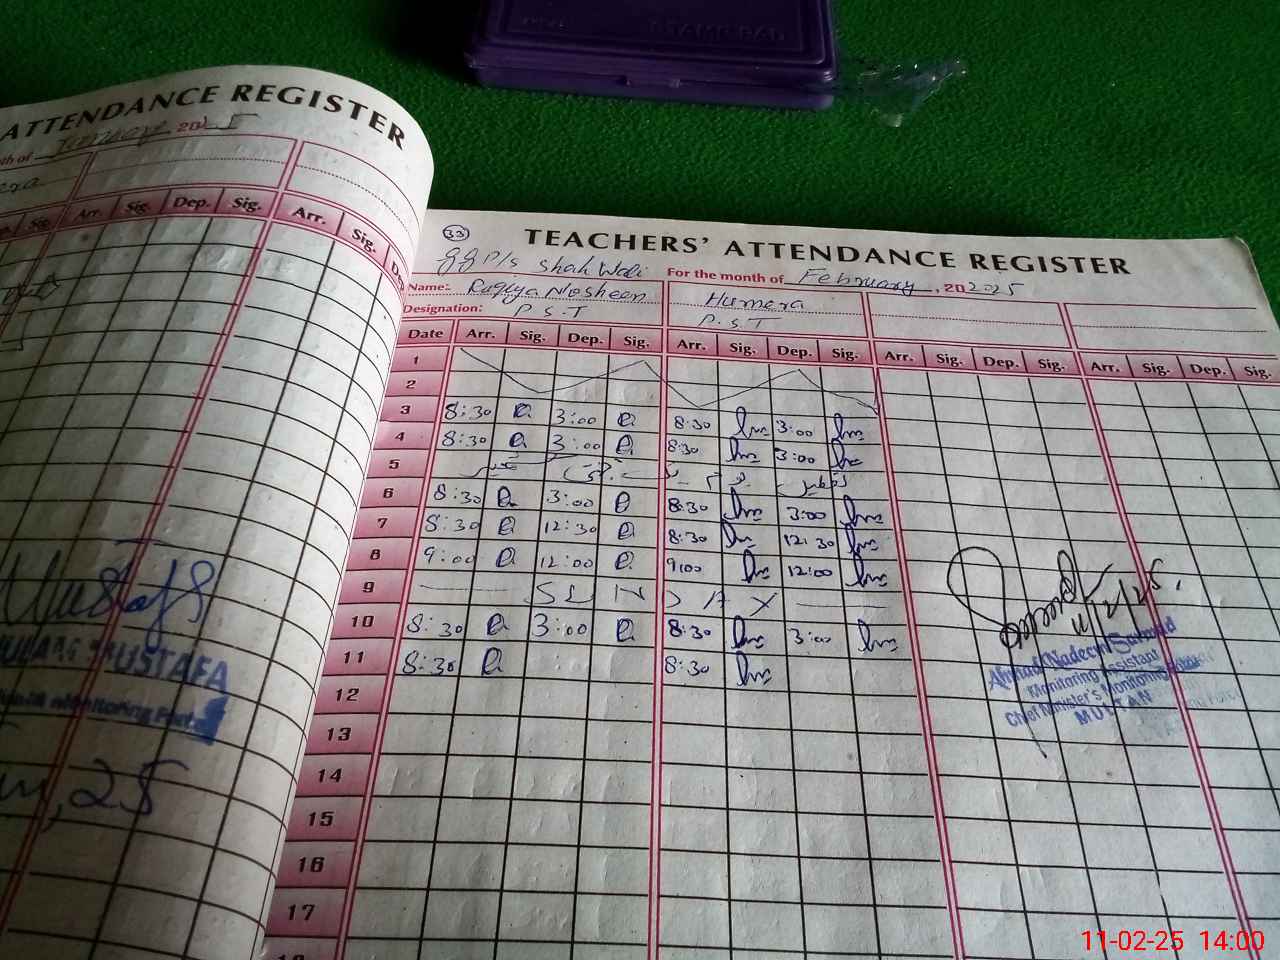 STAMP PAD
ATTENDANCE REGISTER
th of January 2025
Arr. Sig. Dep. Sig. Arr. Sig.
MUSTAFA
Monitoring
33
TEACHERS' ATTENDANCE REGISTER
GGP/S Shah Wali For the month of February, 20 2025
Name: Ruqiya Nosheen Humera
Designation: P.S.T P.S.T
Date Arr. Sig. Dep. Sig. Arr. Sig. Dep. Sig. Arr. Sig. Dep. Sig. Arr. Sig. Dep. Sig.
1
2
3 8:30 3:00 8:30 3:00
4 8:30 3:00 8:30 3:00
5
6 8:30 3:00 8:30 3:00
7 8:30 12:30 8:30 12:30
8 9:00 12:00 9:00 12:00
9 SUNDAY
10 8:30 3:00 8:30 3:00
11 8:30 8:30
12
13
14
15
16
17
18
11/2/25.
Ahmad Nadeem Sarwad
Monitoring Assistant
Chief Minister's Monitoring
MULTAN
11-02-25 14:00